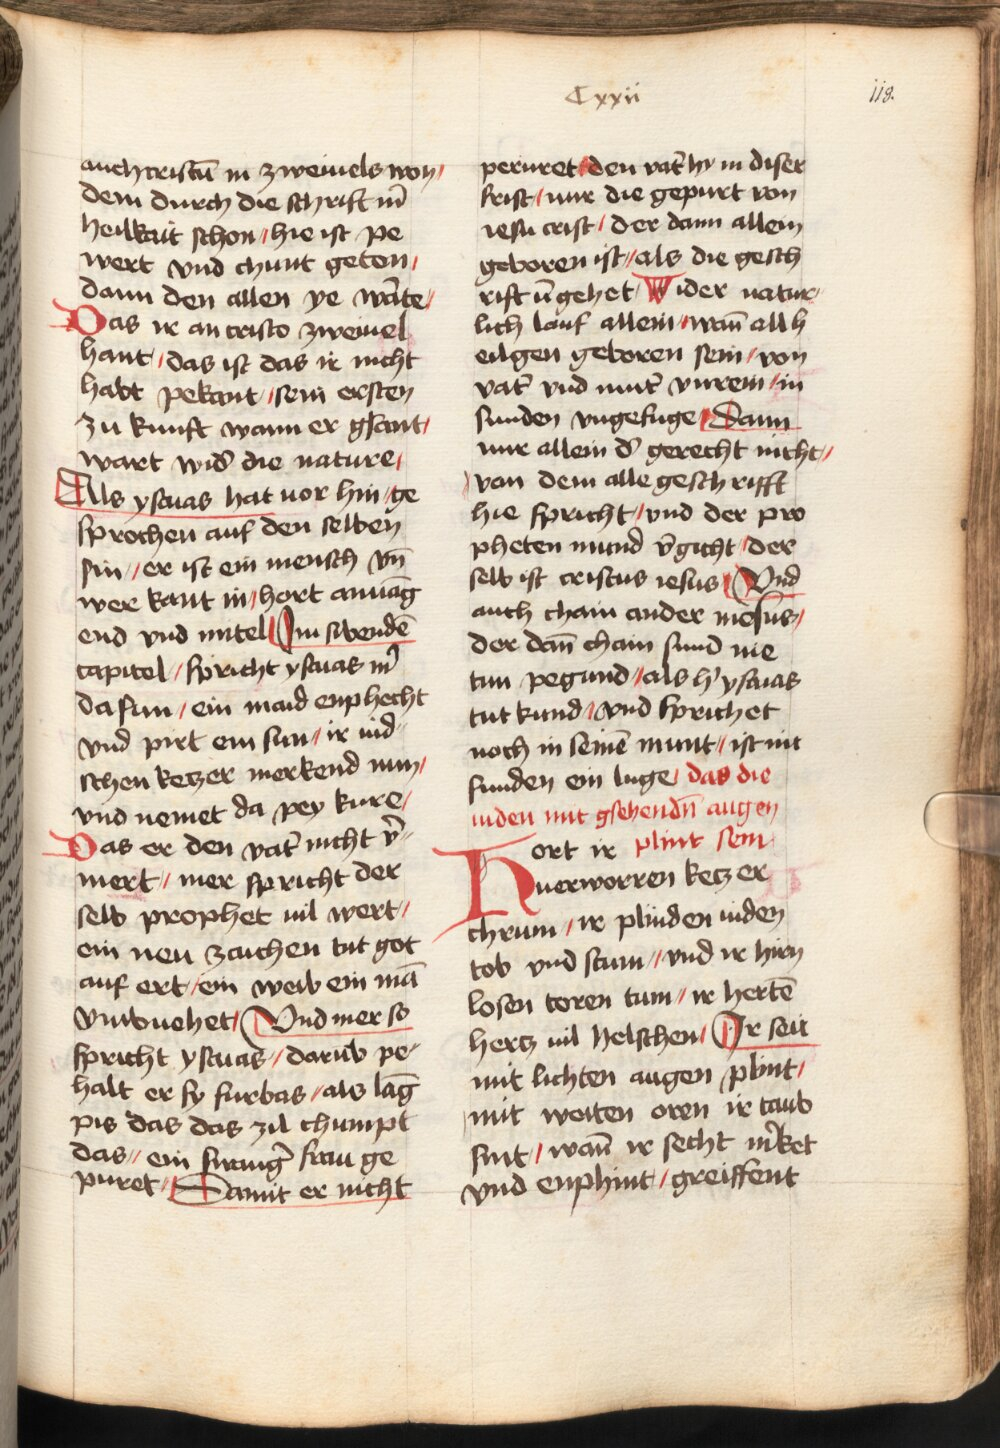 Cxxii
118.
auch cristū in zweiuels won /
dem durch die schrift im̄
heilkait schon / hie ist pe
wert vnd chunt geten /
dann den allen ye wāte /
Das ir an cristo zweiuel
hant / das ist das ir nicht
habt pekant / sein ersten
zu kunft wann er gsant /
wart wid̄ die nature /
Als ysaias hat uor hin / ge
sprochen auf den selben
sin // er ist ein mensch vn̄
wer kant in / hort anuāg
end vnd mitel / Im sibendē
capitel / spricht ysaias im̄
da sun / ein maid enphecht
vnd pirt ein sun / ir iud
schen keczer merkend nun /
vnd nemet da pey kure /
Das er den vat̄ nicht v̄
mert / mer spricht der
selb prophet uil wert /
ein neu zaichen tut got
auf ert / ein weib ein mā
vmbuehet / Vnd mer so
spricht ysaias // darūb pe
halt er sy furbas / als lāg
pis das das zil chumpt
das // ein swangr̄ frau ge
puret / Damit er nicht
periret / den vat̄ hy in diser
frist / nur die gepurt von
iesu crist / der dann allein
geboren ist // als die gesch
rift v̄gehet / Wider natur
lich lauf allein / wan̄ all h
eilgen geboren sein / von
vat̄ vnd mut̄ vnrein / in
sunden vngefuge / Dann
nur allein d̄ gerecht nicht //
van dem alle geschrifft
hie spricht / vnd der pro
pheten mund v̄gicht / der
selb ist cristus iesus / Vnd
auch chain ander
der dan̄ chain sund nie
tun pegund // als h̄ ysaias
tut kund / vnd sprichet
noch in seinē munt / ist nit
funden ein luge / das die
iuden mit gsehendn̄ augen
Hort ir plint sein
uerworren keczer
chrum / ir plinden iuden
tob vnd stum // vnd ir hirn
losen toren tum // ir hertē
hercz uil helschen / Ir seit
mit lichten augen plint /
mit weiten oren ir taub
sint / wan̄ ir secht m̄ket
vnd enphint / greiffent